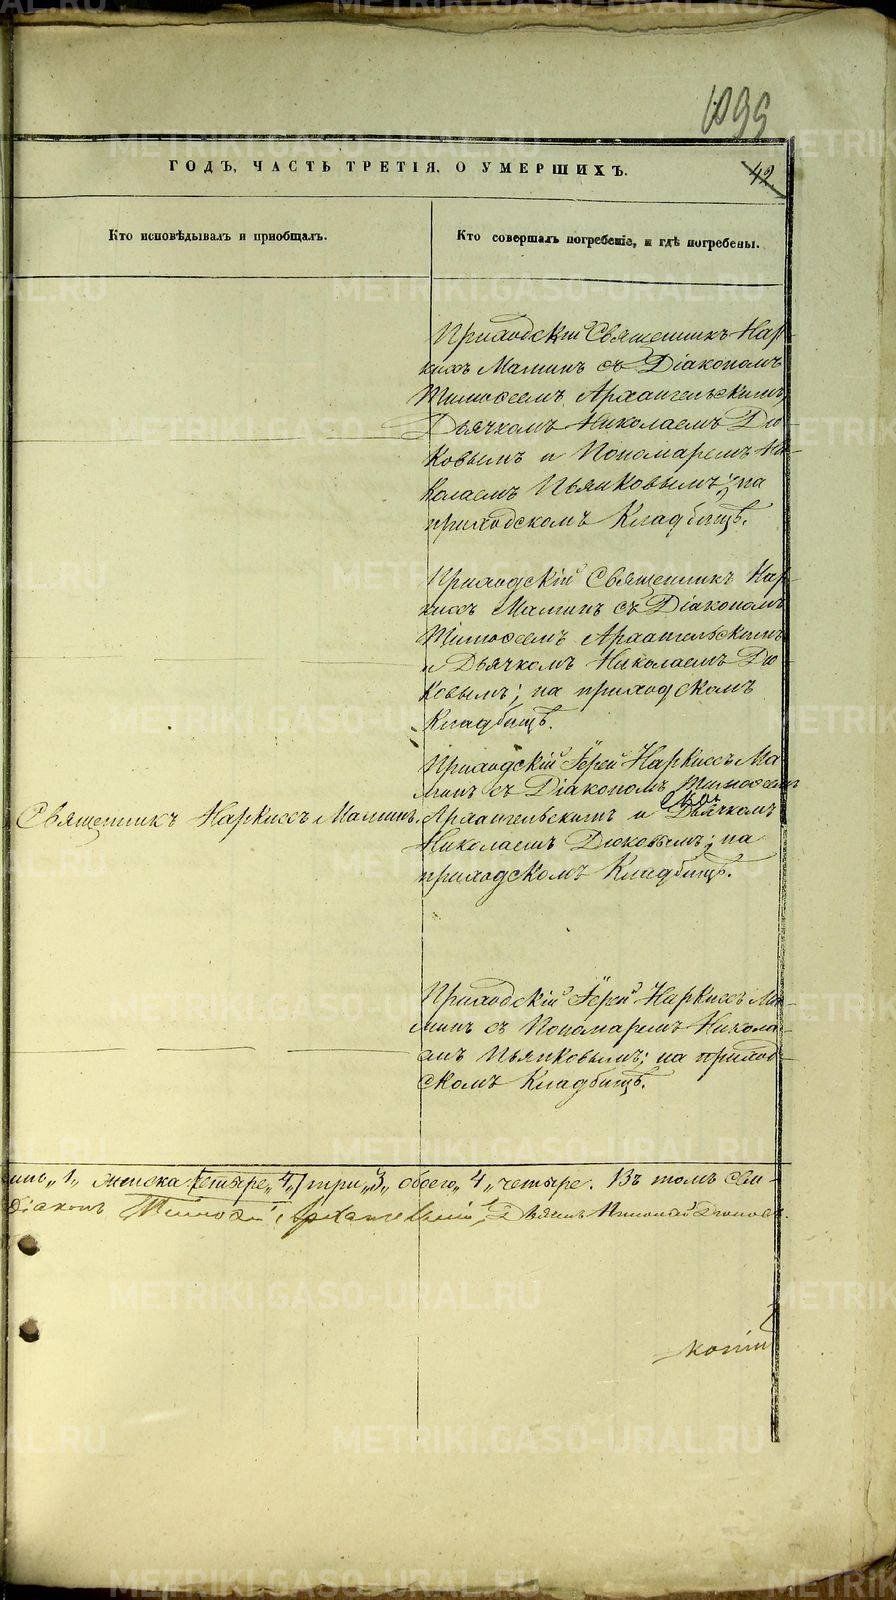 1099
ГОДЪ, ЧАСТЬ ТРЕТІЯ, О УМЕРШИХЪ.
42
Кто исповѣдывалъ и пріобщалъ.
Кто совершалъ погребеніе, и гдѣ погребены.
Приходскій Священникъ Нар-
кисъ Маминъ съ Діакономъ
Тимоѳеемъ Архангельскимъ,
Дьячкомъ Николаемъ Дю-
ковымъ и Пономаремъ Ни-
колаемъ Пьянковымъ; на
приходскомъ Кладбищѣ.
Приходскій Священникъ Нар-
кисъ Маминъ съ Діакономъ
Тимоѳеемъ Архангельскимъ
и Дьячкомъ Николаемъ Дю-
ковымъ; на приходскомъ
Кладбищѣ.
Приходскій Іерей Наркиссъ Ма
минъ съ Діакономъ Тимоѳеемъ
Священникъ Наркиссъ Маминъ.
Архангельскимъ и Дьячкомъ
Николаемъ Дюковымъ; на
приходскомъ Кладбищѣ.
Приходскій Іерей Наркиссъ Ма-
минъ съ Пономаремъ Никола-
емъ Пьянковымъ; на приход-
скомъ Кладбищѣ.
„1„ женска [четыре „4„] три „3„ обоего „4„ четыре. Въ томъ сви-
Діаконъ Тимоѳей Архангельскій, Дьячекъ Николай Дюковъ.
копіи
METRIKI.GASO-URAL.RU